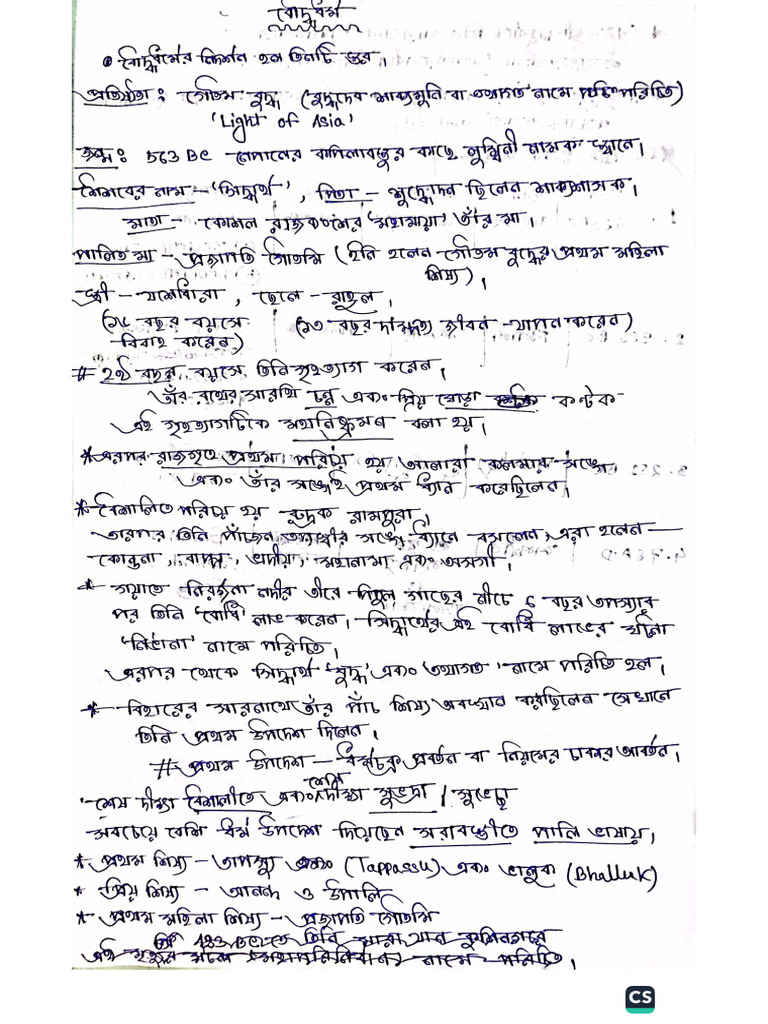 বৌদ্ধধর্ম
• বৌদ্ধধর্মের নিদর্শন হল তিনটি স্তূপ।
প্রতিষ্ঠাতা : গৌতম বুদ্ধ (বুদ্ধদেব শাক্যমুনি বা তথাগত নামে পরিচিত)
'Light of Asia'
জন্ম : 563 BC নেপালের কপিলাবস্তুর কাছে লুম্বিনী নামক স্থানে।
শৈশবের নাম – 'সিদ্ধার্থ', পিতা – শুদ্ধোদন ছিলেন শাক্যশাসক।
মাতা – কোশল রাজবংশের 'মহামায়া' তাঁর মা।
পালিত মা – প্রজাপতি গৌতমি (ইনি হলেন গৌতম বুদ্ধের প্রথম মহিলা
শিষ্য)।
স্ত্রী – যশোধারা, ছেলে – রাহুল।
(১৬ বছর বয়সে (১৩ বছর দাম্পত্য জীবন যাপন করেন)
বিবাহ করেন)
# ২৭ বছর বয়সে তিনি গৃহত্যাগ করেন।
তাঁর রথের সারথি চন্ন এবং প্রিয় ঘোড়া কণ্টক
এই গৃহত্যাগটিকে মহানিষ্ক্রমন বলা হয়।
* এরপর রাজগৃহে প্রথম পরিচয় হয় আলারা কলমার সঙ্গে
এবং তাঁর সঙ্গেই প্রথম ধ্যান করেছিলেন।
* বৈশালিতে পরিচয় হয় রুদ্রক রামপুরা।
তারপর তিনি পাঁচজন তপস্বীর সঙ্গে ধ্যানে বসলেন, এরা হলেন —
কোন্ডনা, বাপ্পা, ভদীয়া, মহানামা এবং অসগী।
* গয়াতে নিরঞ্জনা নদীর তীরে পিপুল গাছের নীচে 6 বছর তপস্যার
পর তিনি 'বোধি' লাভ করেন। সিদ্ধার্থের এই বোধি লাভের ঘটনা
'নির্ভানা' নামে পরিচিত।
এরপর থেকে সিদ্ধার্থ 'বুদ্ধ' এবং তথাগত' নামে পরিচিত হল।
* বিহারের সারনাথে তাঁর পাঁচ শিষ্য অবস্থান করছিলেন সেখানে
তিনি প্রথম উপদেশ দিলেন।
# প্রথম উপদেশ – ধর্মচক্র প্রবর্তন বা নিয়মের চাকার আবর্তন।
শেষ দীক্ষা বৈশালীতে এবং শেষ দীক্ষা সুভদ্রা।
সবচেয়ে বেশি ধর্ম উপদেশ দিয়েছেন সরাবস্তীতে পালি ভাষায়।
* প্রথম শিষ্য – তাপস্যু এবং (Tappassu) এবং ভালুক (Bhalluk)
* প্রিয় শিষ্য – আনন্দ ও উপালি
* প্রথম মহিলা শিষ্য – প্রজাপতি গৌতমি
483 BC তে তিনি মারা যান কুশিনগরে
এই মৃত্যুর ঘটনা মহাপরিনির্বাণ নামে পরিচিত।
CS